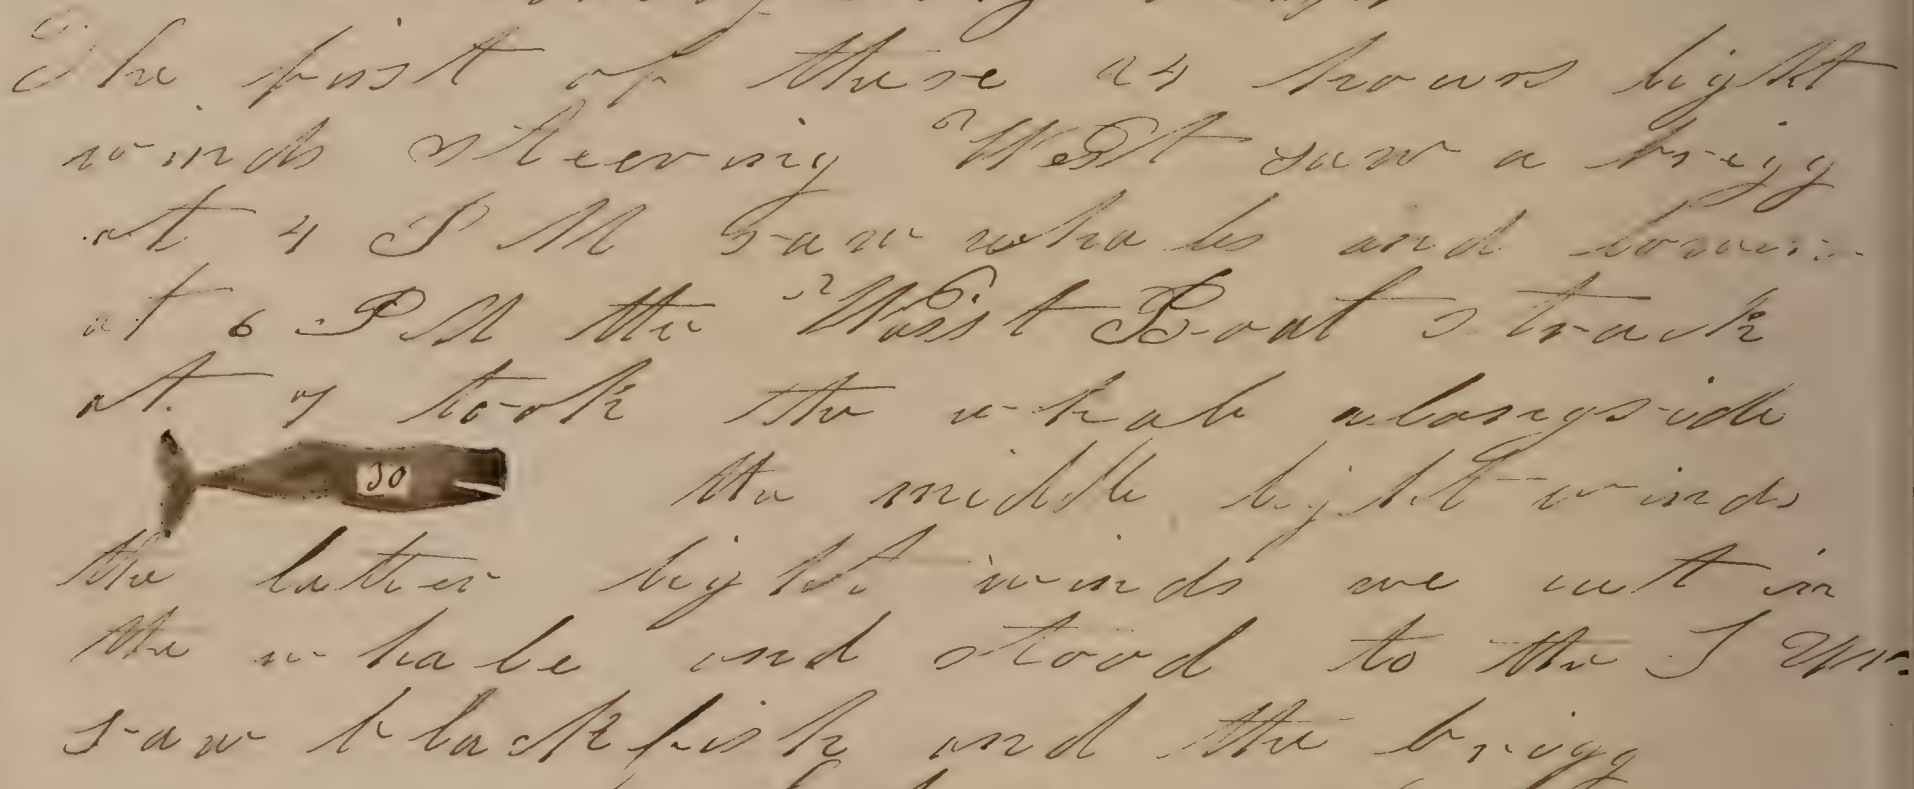 The first of these 24 hours light
winds steering West saw a brigg
at 4 PM saw whales and
at 6 PM the Waist Boat struck
at 7 took the whale alongside
30 the middle light winds
the latter light winds we cut in
the whale and stood to the S
saw blackfish and the brigg